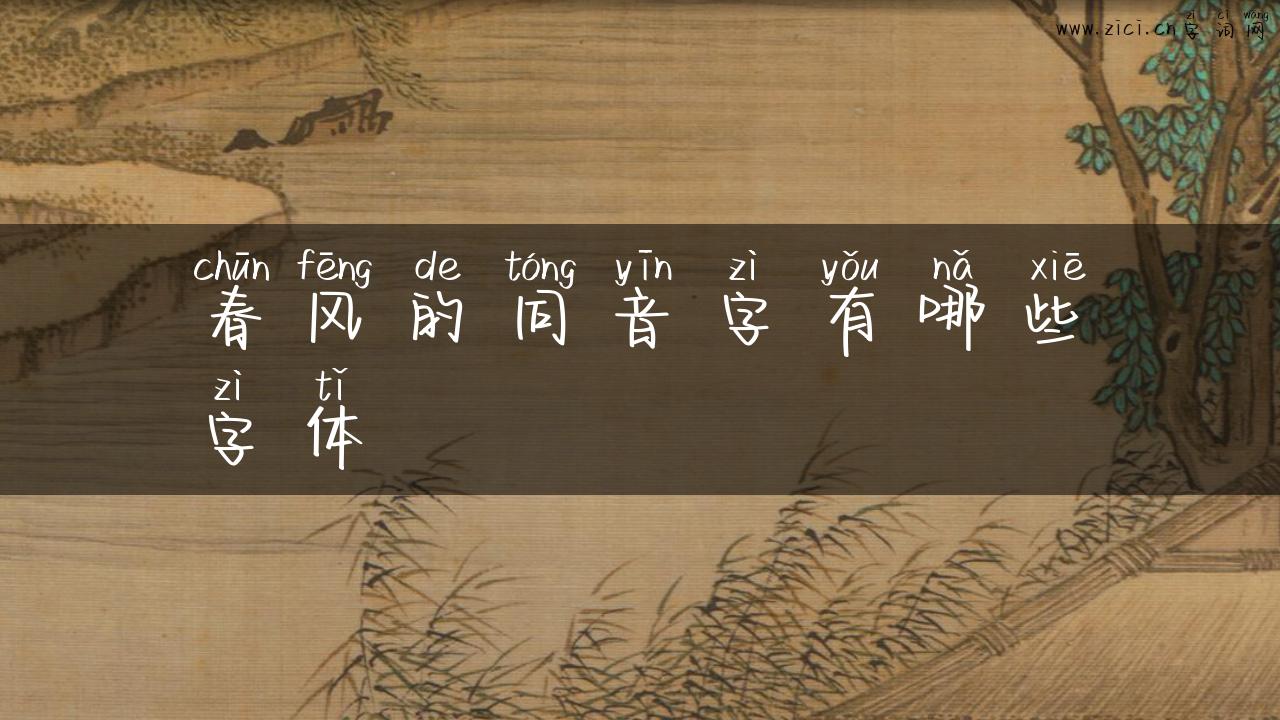 zì cí wǎng
www.zici.cn字词网
chūn fēng de tóng yīn zì yǒu nǎ xiē
春风的同音字有哪些
zì tǐ
字体